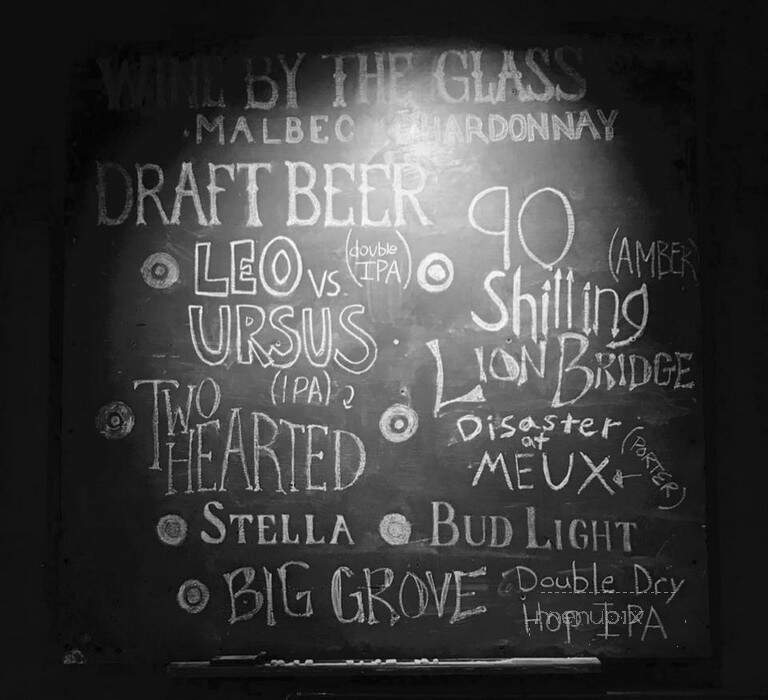 WINE BY THE GLASS
MALBEC CHARDONNAY
DRAFT BEER
LEO vs. (double IPA)
URSUS
90 (AMBER)
Shilling
(IPA)
TWO
HEARTED
LION BRIDGE
Disaster
at
MEUX (PORTER)
STELLA
BUD LIGHT
BIG GROVE Double Dry
Hop IPA
menupix